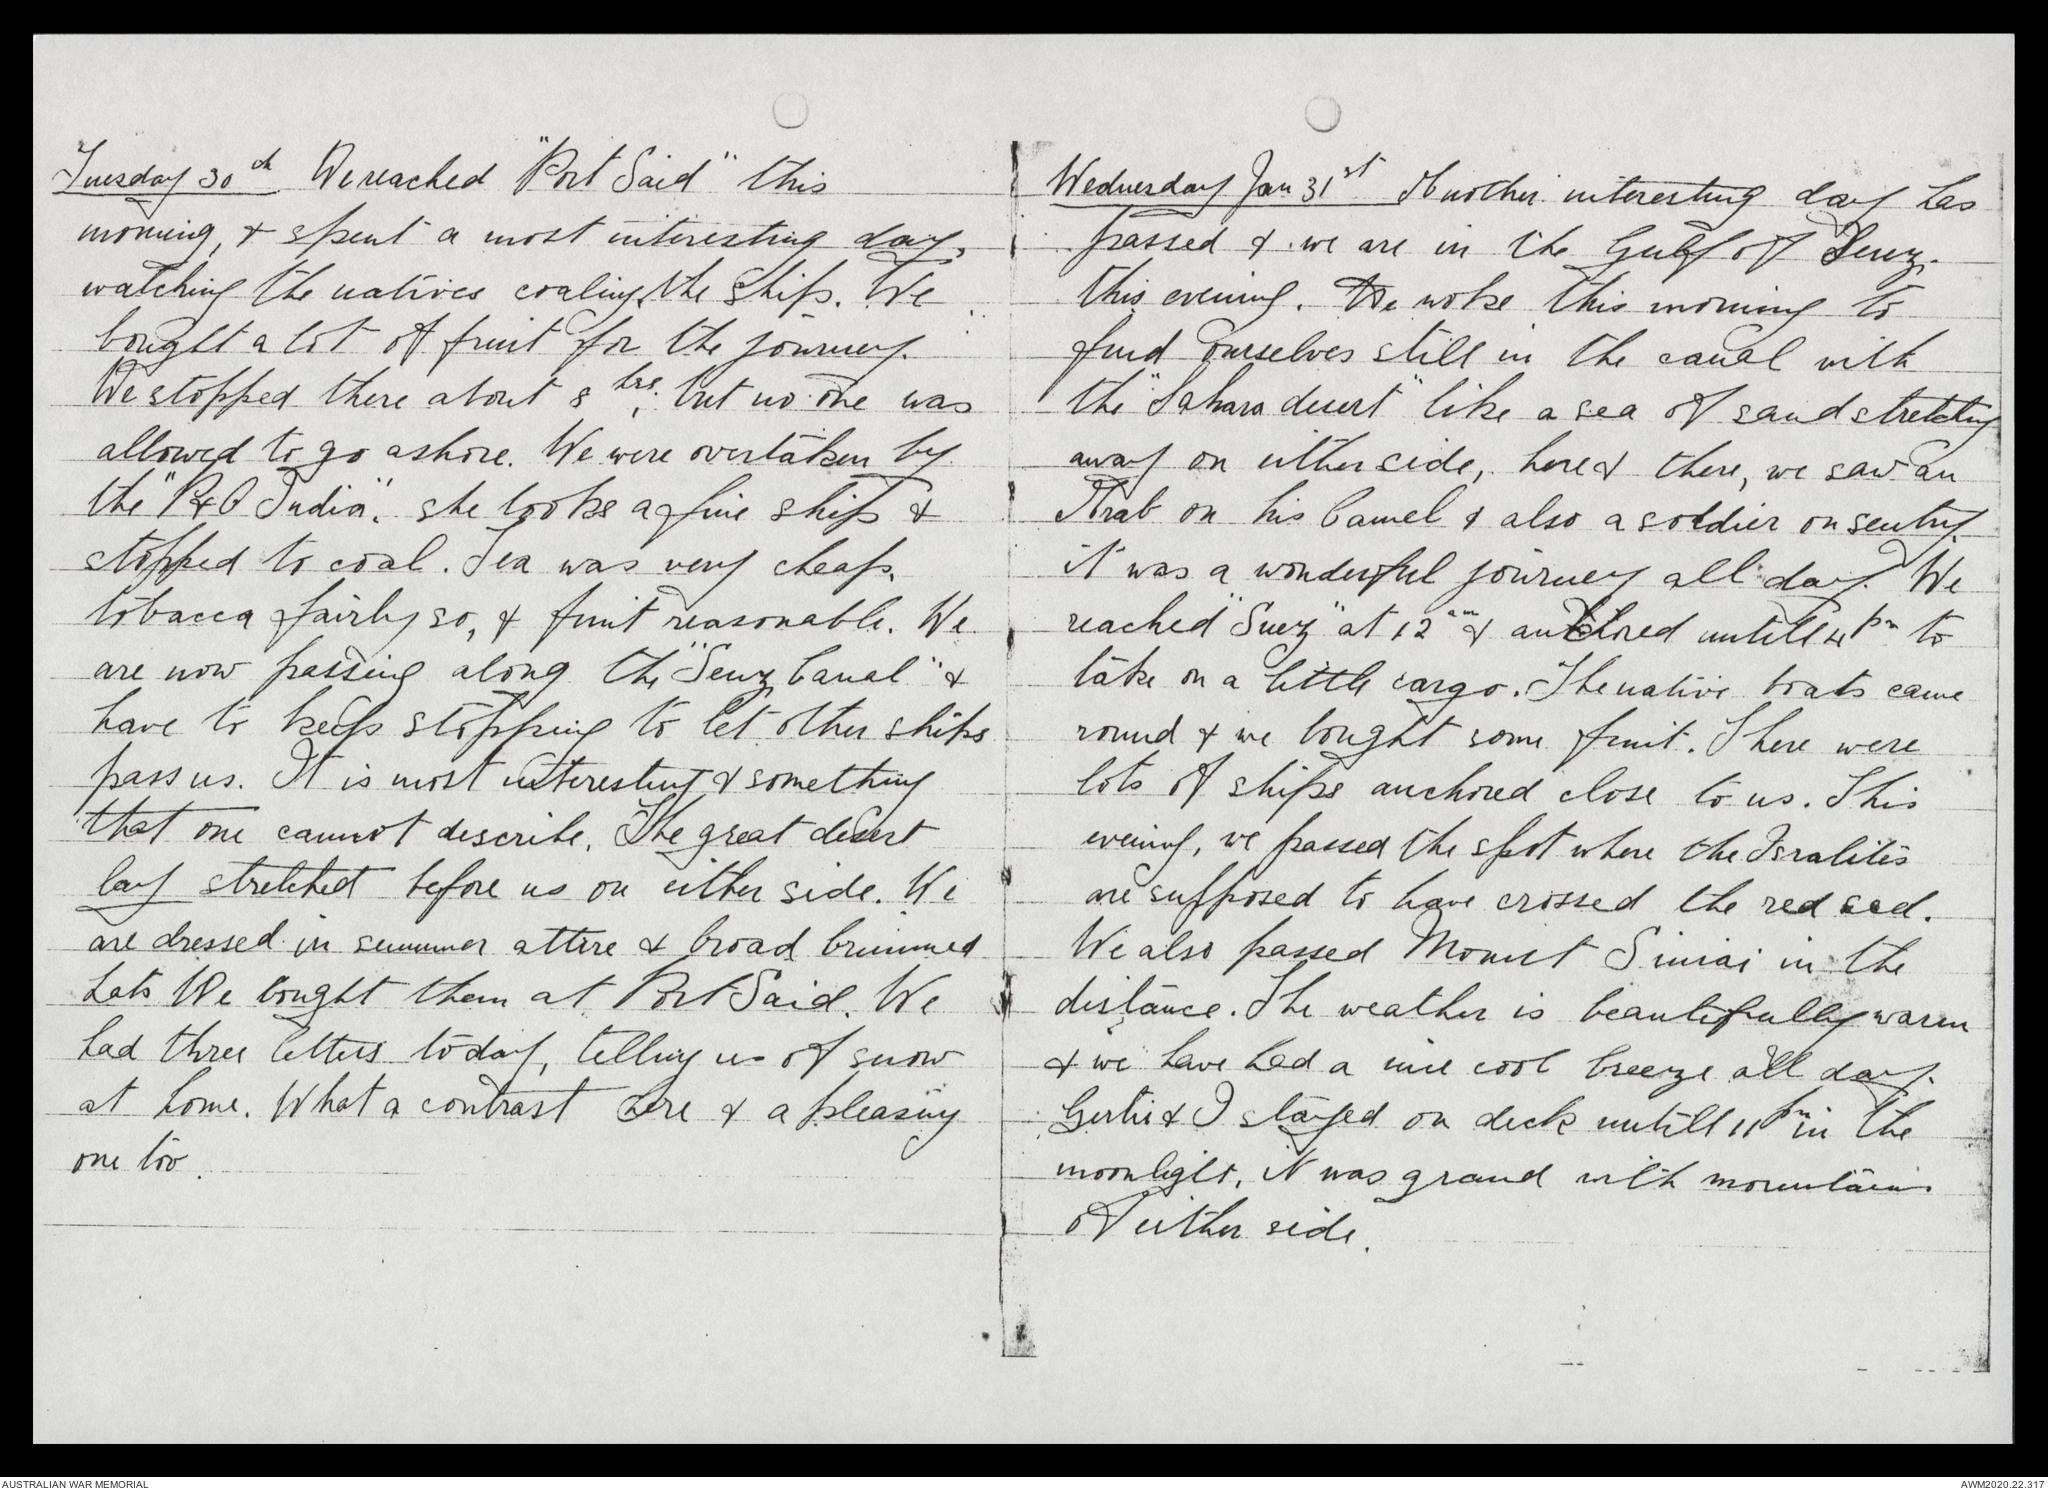 Tuesday 30th We reached "Port Said" this
morning, & spent a most interesting day,
watching the natives coaling the ship. We
bought a lot of fruit for the journey.
We stopped there about 8 hrs, but no one was
allowed to go ashore. We were overtaken by
the "P&O India". she looks a fine ship &
stopped to coal. Tea was very cheap,
tobacca fairly so, & fruit reasonable. We
are now passing along the "Seuz Canal" &
have to keep stopping to let other ships
pass us. It is most interesting & something
that one cannot describe. The great desert
lay stretched before us on either side. We
are dressed in summer attire & broad brimmed
hats We bought them at Port Said. We
had three letters today, telling us of snow
at home. What a contrast here & a pleasing
one too.
Wednesday Jan 31st Another interesting day has
passed & we are in the Gulf of Seuz.
this evening. We woke this morning to
find ourselves still in the canal with
the "Sahara desert" like a sea of sand stretching
away on either side, here & there, we saw an
Arab on his Camel & also a soldier on sentry.
it was a wonderful journey all day. We
reached "Suez" at 12 am & anchored untill 4 pm to
take on a little cargo. The native boats came
round & we bought some fruit. There were
lots of ships anchored close to us. This
evening, we passed the spot where the Isralites
are supposed to have crossed the red sea.
We also passed Mount Siniai in the
distance. The weather is beautifully warm
& we have had a nice cool breeze all day.
Gertie & I stayed on deck untill 11 pm in the
moonlight, it was grand with mountains
of either side.
AUSTRALIAN WAR MEMORIAL
AWM2020.22.317